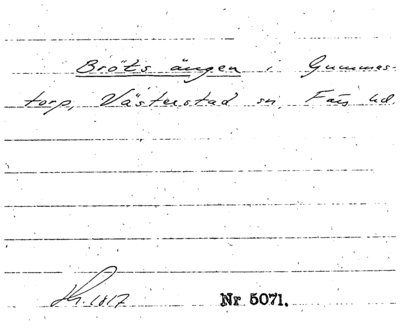 Bröts ängen i Gummes-
torp, Västerstad sn, Färs hd.
1817 Nr 5071.